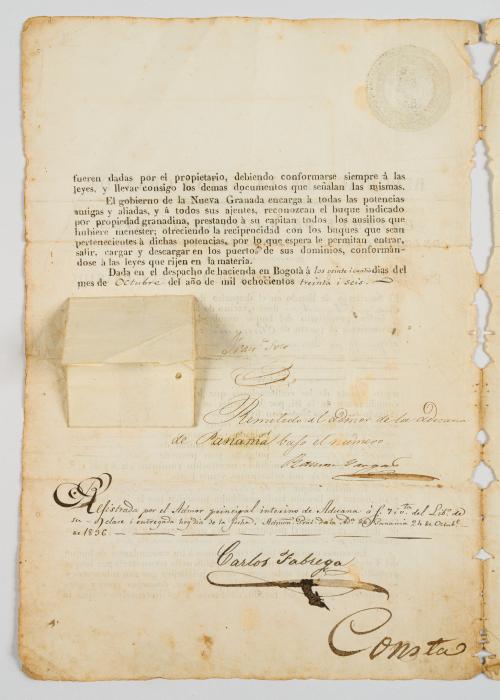 fueren dadas por el propietario, debiendo conformarse siempre á las
leyes, y llevar consigo los demas documentos que señalan las mismas.
El gobierno de la Nueva Granada encarga à todas las potencias
amigas y aliadas, y á todos sus ajentes, reconozcan el buque indicado
por propiedad granadina, prestando à su capitan todos los ausilios que
hubiere menester; ofreciendo la reciprocidad con los buques que sean
pertenecientes à dichas potencias, por lo que espera le permitan entrar,
salir, cargar y descargar en los puertos de sus dominios, conformán-
dose à las leyes que rijen en la materia.
Dada en el despacho de hacienda en Bogotà à los veinte i cuatro dias del
mes de Octubre del año de mil ochocientos treinta i seis.
Remitido al admor de la Aduana
de Panamá bajo el numero
Ramon Vargas
Rejistrada por el Admor principal interino de Aduana á f. 7 i vta del Lib.º de
su clase i entregada hoy dia de la fecha. Admon Pral de la Panamá 24 de Octub.e
de 1836
Carlos Fabrega
Consta